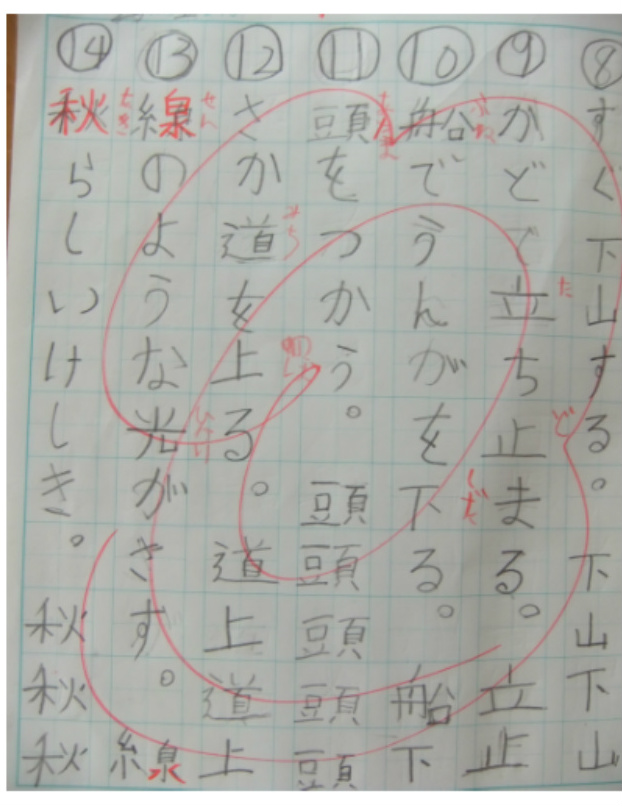 ⑧
すぐ下山する。下山下山
⑨
かどで立ちた止どまる。立止
⑩
船ふねでうんがを下くだる。船下
⑪
頭あたまをつかう。頭頭頭頭頭
⑫
さか道みちを上のぼる。道上道上
⑬
線せんのような光ひかりがさす。線
⑭
秋あきらしいけしき。秋秋秋